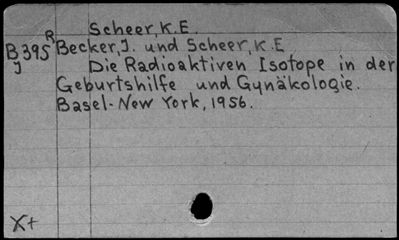 Scheer, K.E.
R
B395 Becker, J. und Scheer, K.E
J
Die Radioaktiven Isotope in der
Geburtshilfe und Gynäkologie.
Basel-New York, 1956.
X+